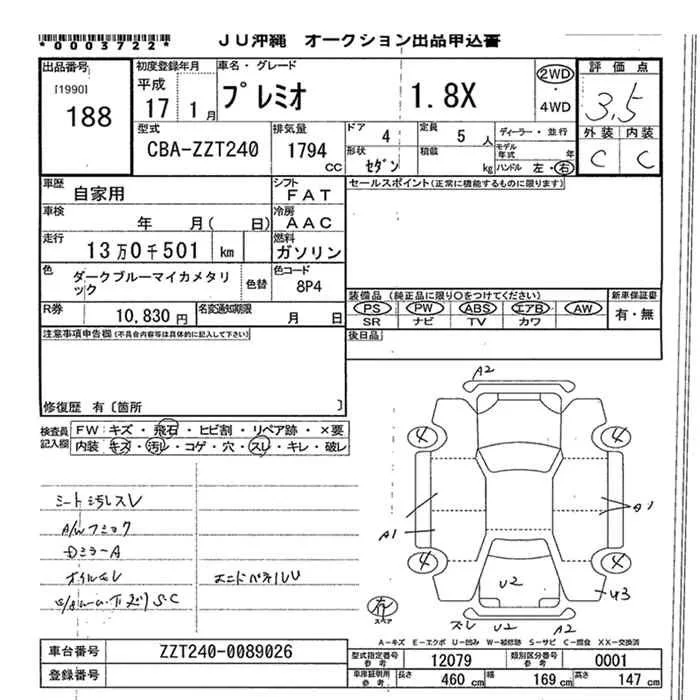 *0003722*
JU沖縄 オークション出品申込書
出品番号 初度登録年月 車名・グレード 評価点
[1990] 188
平成 17 1月
プレミオ 1.8X
2WD ・ 4WD
3.5
外装 内装
C C
型式 排気量 ドア 4 定員 5 人 ディーラー・並行
CBA-ZZT240 1794 CC
形状 セダン 積載 kg モデル年式 年
ハンドル 左・右
車歴 自家用 シフト FAT
セールスポイント(正常に機能するものに限ります)
車検 年 月( 日) 冷房 AAC
走行 13万0千501 km 燃料 ガソリン
色 ダークブルーマイカメタリック 色替 色コード 8P4
装備品 (純正品に限り○をつけてください) 新車保証書
PS PW ABS エアB AW 有・無
SR ナビ TV カワ
R券 10,830円 名変通知期限 月 日
後日品
注意事項申告欄(不具合内容等は具体的に記入して下さい)
修復歴 有〔箇所 〕
検査員記入欄
FW: キズ ・ 飛石 ・ ヒビ割 ・ リペア跡 ・ ×要
内装 キズ・汚レ・コゲ・穴・スレ・キレ・破レ
シート汚レスレ
Dミラー A
A2
4 4
A1 A1
4 4
U2 U3
有 スペア
スレ U2 A2
A-キズ E-エクボ U-凹み W-補修跡 S-サビ C-腐食 XX-交換済
車台番号 ZZT240-0089026
型式指定番号 参考 12079 類別区分番号 参考 0001
登録番号
車庫証明用 参考 長さ 460 cm 幅 169 cm 高さ 147 cm